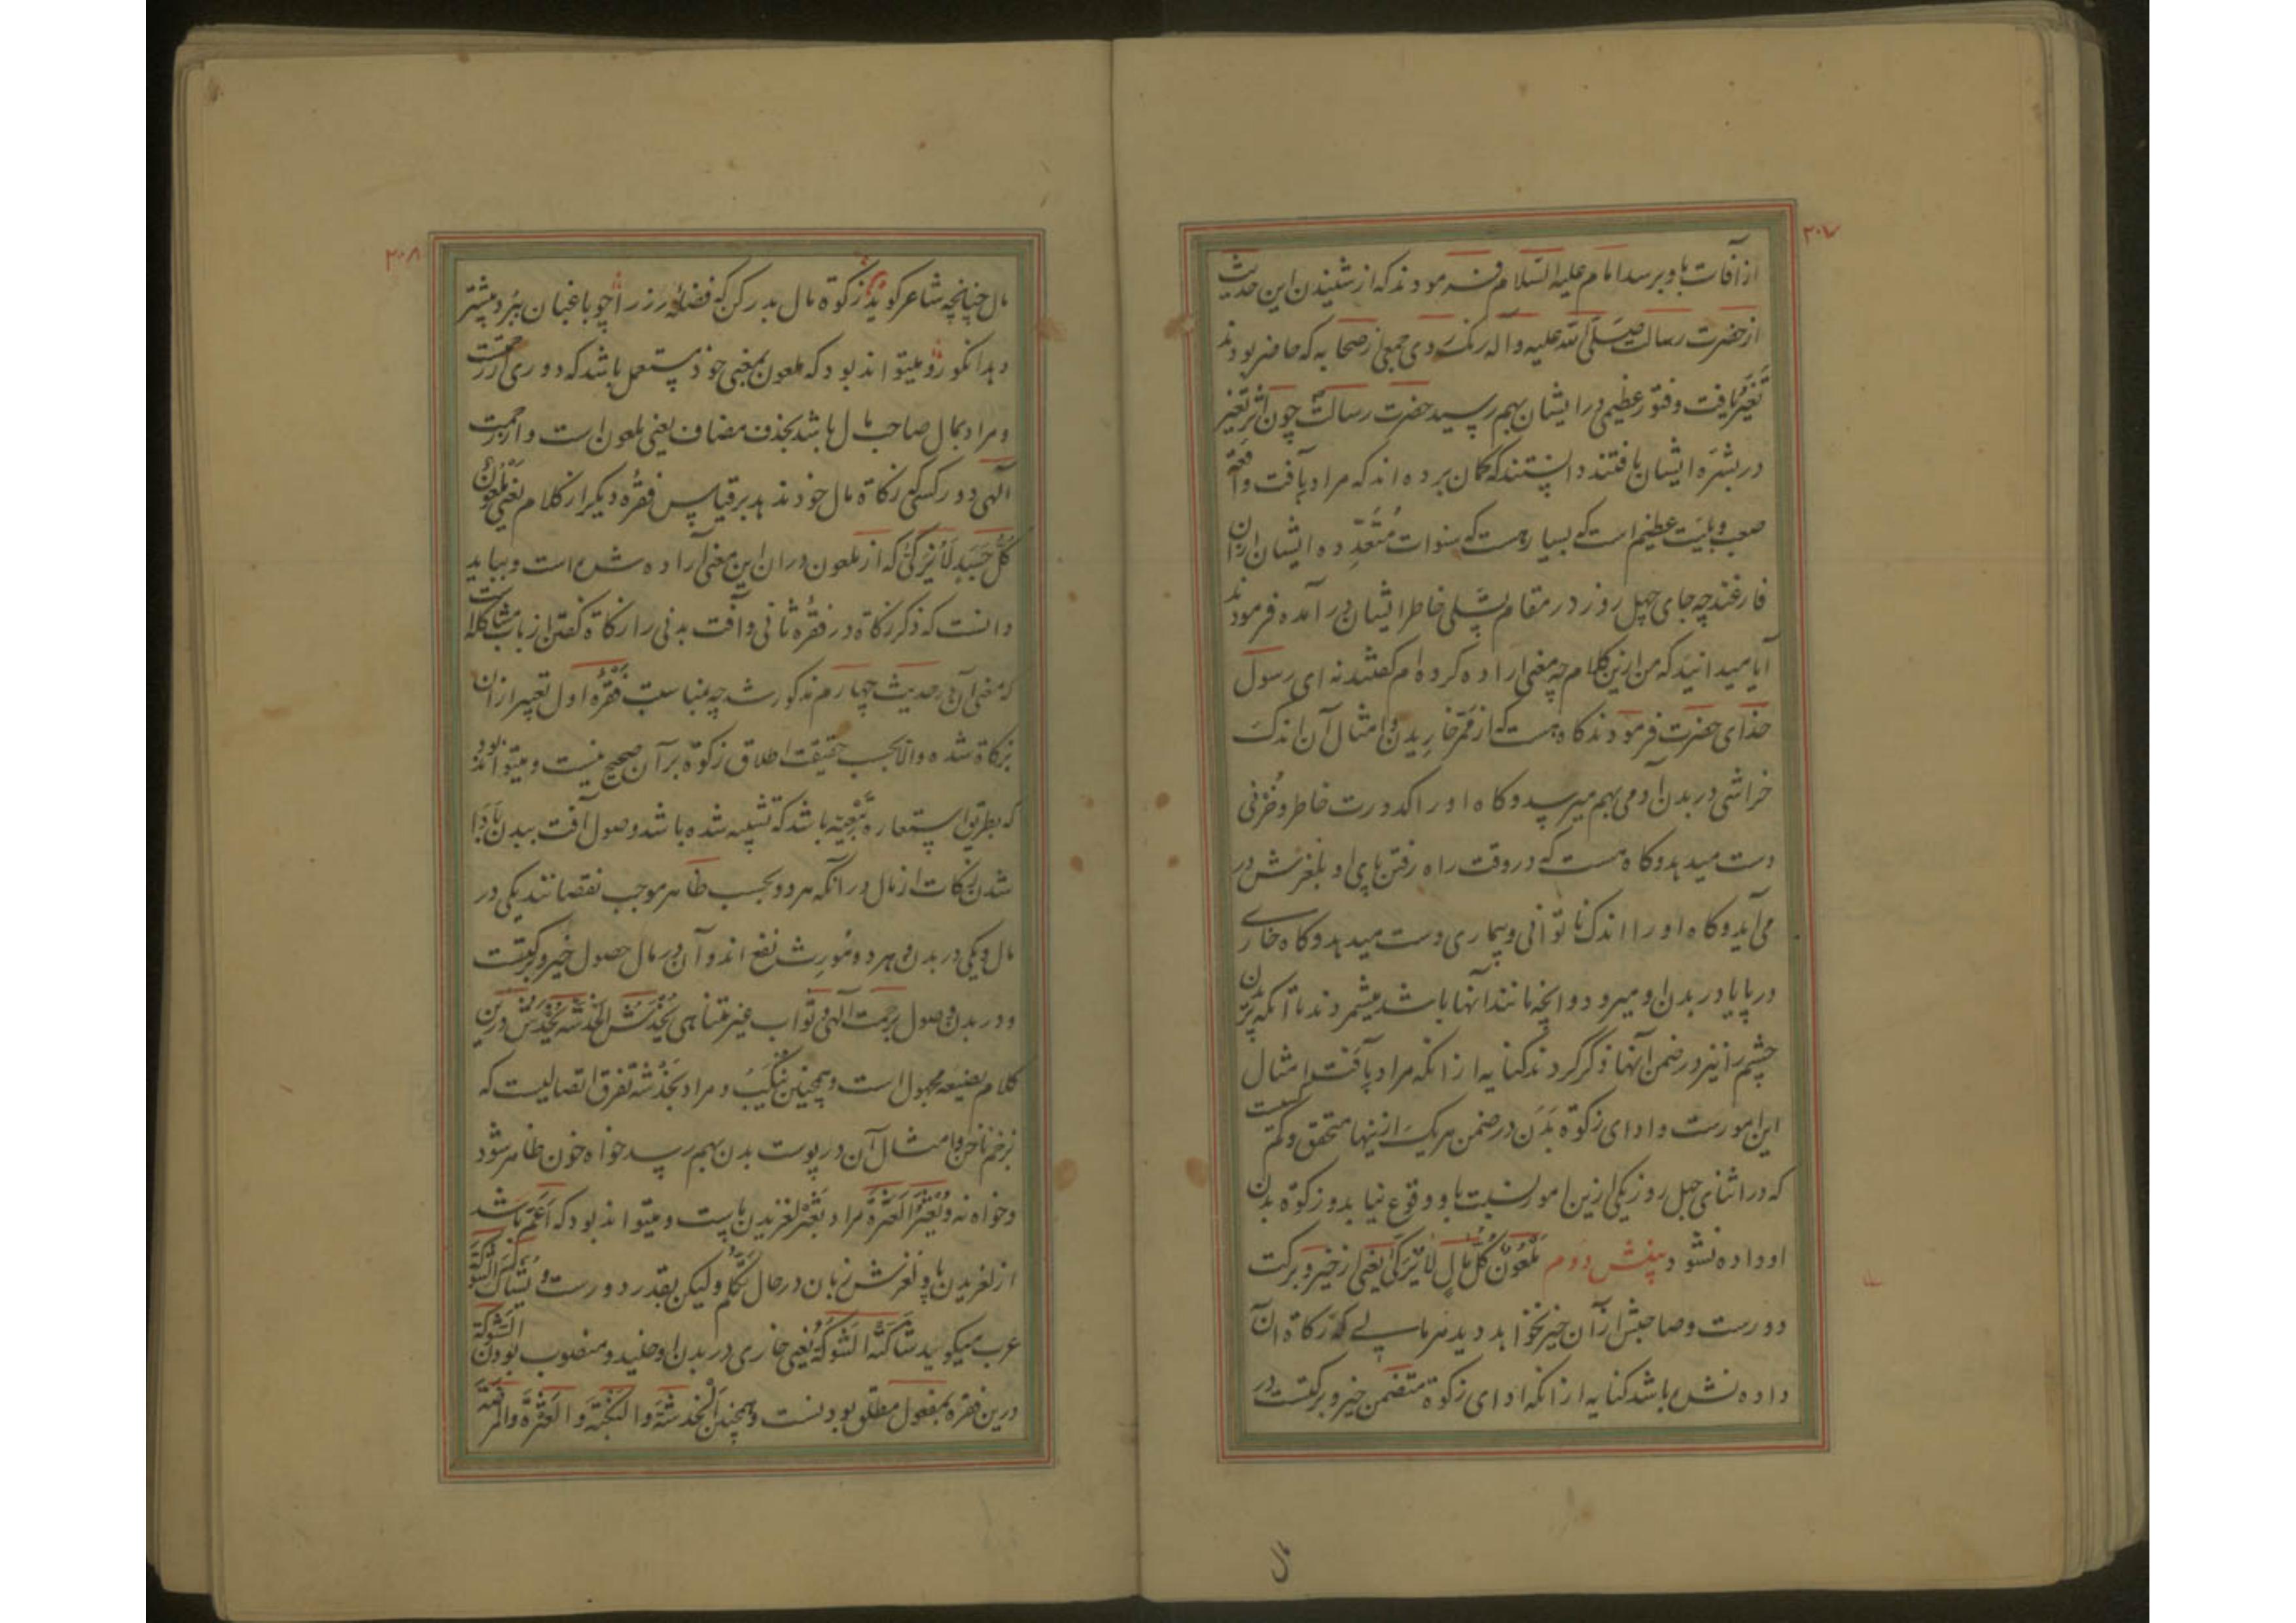 ٢٠٧
از آفات باو برسد امام علیه السّلام فرمودند که از شنیدن این حدیث
از حضرت رسالت صلّی الله علیه و آله رنک روی جمعی از صحابه که حاضر بودند
تغیّر یافت و فتور عظیمی در ایشان بهم رسید حضرت رسالت چون اثر تغیّر
در بشره ایشان یافتند دانستند که کمان برده اند که مراد بآفت واقعهٔ
صعب و بلیّت عظیم است که بسیار هست که سنوات متعدّده ایشان از ان
فارغند چه جای چهل روز در مقام تسلی خاطر ایشان در آمده فرمودند
آیا میدانید که من ازین کلام چه معنی اراده کرده ام کفتند نه ای رسول
خدای حضرت فرمودند کاه هست که از ممر خاریدن و امثال آن اندک
خراشی در بدن آدمی بهم میرسد و کاه او را کدورت خاطر و حُزنی
دست میدهد و کاه هست که در وقت راه رفتن پای او بلغزش در
می آید و کاه او را اندک ناتوانی و بیماری دست میدهد و کاه خاری
در پا یا در بدن او میرود و آنچه مانند آنها باشد میشمردند تا آنکه پریدن
چشم را نیز در ضمن آنها ذکر کردند کنایه از آنکه مراد بآفت امثال
این امورست و ادای زکوة بدن در ضمن هر یک ازینها متحقق و کم است
که در اثنای چهل روز یکی ازین امور نسبت باو وقوع نیابد و زکوة بدن
او داده نشود بینش دوم مَلعُونٌ کُلُّ مالٍ لا یُزَکّی یعنی از خیر و برکت
دورست و صاحبش از آن خیر نخواهد دید هر مالی که زکاة ان
داده نشده باشد کنایه از آنکه ادای زکوة متضمن خیر و برکتست در
مال
٢٠٨
مال چنانچه شاعر کوید زکوة مال بدر کن که فضلهٔ رز را چو باغبان ببُرد بیشتر
دهد انکور و میتواند بود که ملعون بمعنی خود مستعمل باشد که دوری از رحمتست
و مراد بمال صاحب مال باشد بحذف مضاف یعنی ملعون است و از رحمت
آلهی دور کسی که زکاة مال خود ندهد بر قیاس فقرهٔ دیکر از کلام یعنی مَلعُونٌ
کُلُّ جَسَدٍ لا یُزَکّی که از ملعون در ان این معنی اراده شده است و بباید
دانست که ذکر زکاة در فقره ثانی و آفت بدنی را زکاة کفتن از باب مشاکله است
که معنی آن در حدیث چهارم مذکور شد چه بمناسبت فقرهٔ اول تعبیر از ان
بزکاة شده و الا بحسب حقیقت اطلاق زکوة بر آن صحیح نیست و میتواند بود
که بطریق استعاره تبعیّه باشد که تشبیه شده باشد وصول آفت ببدن بادا
شدن زکات از مال در آنکه هر دو بحسب ظاهر موجب نقصانند یکی در
مال و یکی در بدن و هر دو مُورِث نفع اند و آن در مال حصول خیر و برکتست
و در بدن وصول برحمت آلهی و ثواب غیر متناهی یُخْدَشُ الخَدْشَةَ یُخْدَش درین
کلام بصیغه مجهول است و همچنین یُنکَبُ و مراد بخَدْشَه تفرق اتصالیست که
بزخم ناخن و امثال آن در پوست بدن بهم رسد خواه خون ظاهر شود
و خواه نه وَ یُعْثَرُ العَثْرَةَ مراد بعَثْرَه لغزیدن پاست و میتواند بود که اَعَمّ باشد
از لغزیدن پا و لغزش زبان در حال تکلّم و لیکن بقدر دورست وَ یُشاکُ الشَّوکَةَ
عرب میکوید شاکَتْهُ الشَّوکَةُ یعنی خاری در بدن او خلید و منصوب بودن الشَّوکَة
درین فقره بمفعول مطلق بودنست و همچنین الخَدشَةَ و النَّکبَةَ و العَثْرَةَ و المرضَةَ